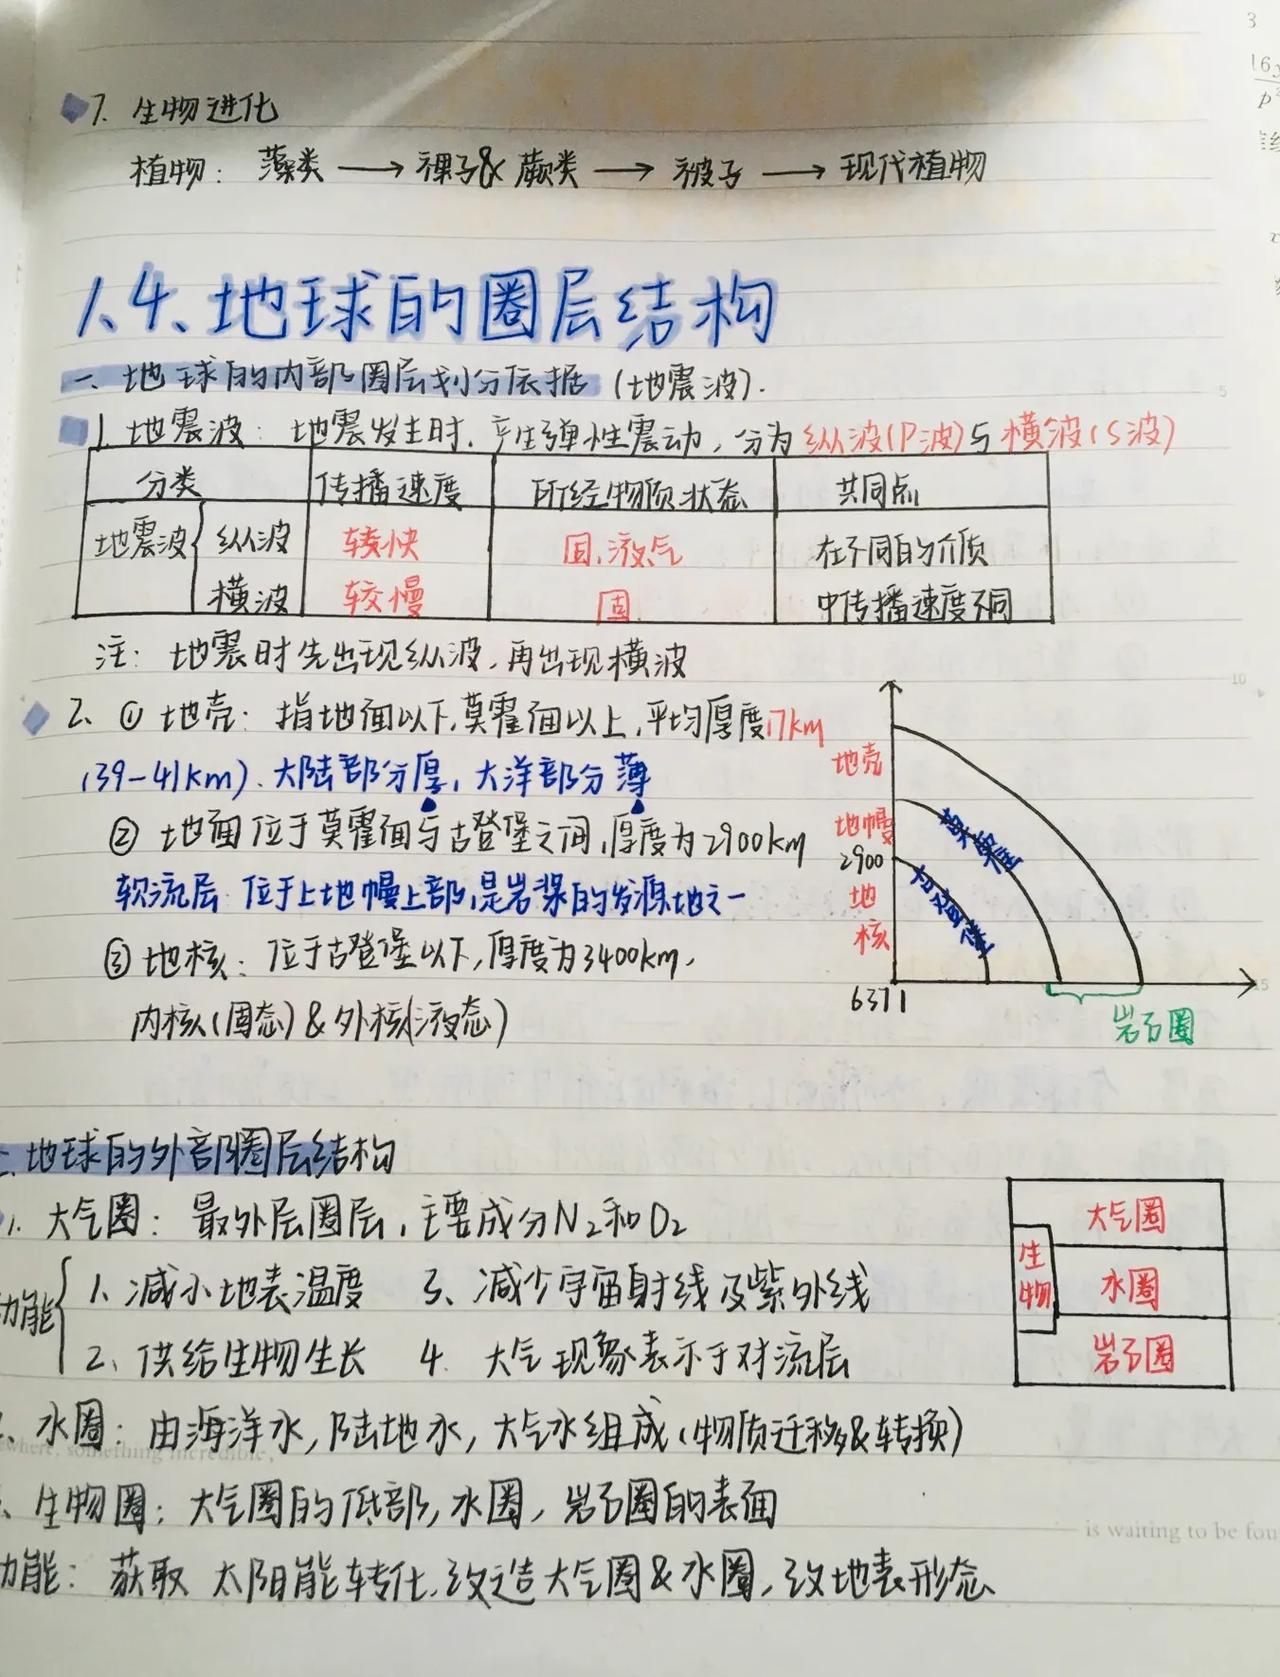 7. 生物进化
植物：藻类 → 裸子&蕨类 → 被子 → 现代植物
1.4、地球的圈层结构
一、地球的内部圈层划分依据（地震波）.
1. 地震波：地震发生时，产生弹性震动，分为纵波(P波)与横波(S波)
分类 传播速度 所经物质状态 共同点
地震波 纵波 较快 固、液、气 在不同的介质
横波 较慢 固 中传播速度不同
注：地震时先出现纵波，再出现横波
2、① 地壳：指地面以下，莫霍面以上，平均厚度17km
(39-41km). 大陆部分厚，大洋部分薄
② 地面位于莫霍面与古登堡之间，厚度为2900km
软流层 位于上地幔上部，是岩浆的发源地之一
③ 地核：位于古登堡以下，厚度为3400km，
内核(固态)&外核(液态)
地壳
地幔
2900
地
核
6371
莫霍
古登堡
岩石圈
二、地球的外部圈层结构
1. 大气圈：最外层圈层，主要成分N₂和O₂
功能
1、减小地表温度 3、减少宇宙射线及紫外线
2、供给生物生长 4. 大气现象表示于对流层
大气圈
生物
水圈
岩石圈
、水圈：由海洋水，陆地水，大气水组成（物质迁移&转换）
where, something incredible,
、生物圈：大气圈的低部，水圈，岩石圈的表面
is waiting to be fou
功能：获取 太阳能转化，改造大气圈&水圈，改地表形态
3
16
p
5
10
15